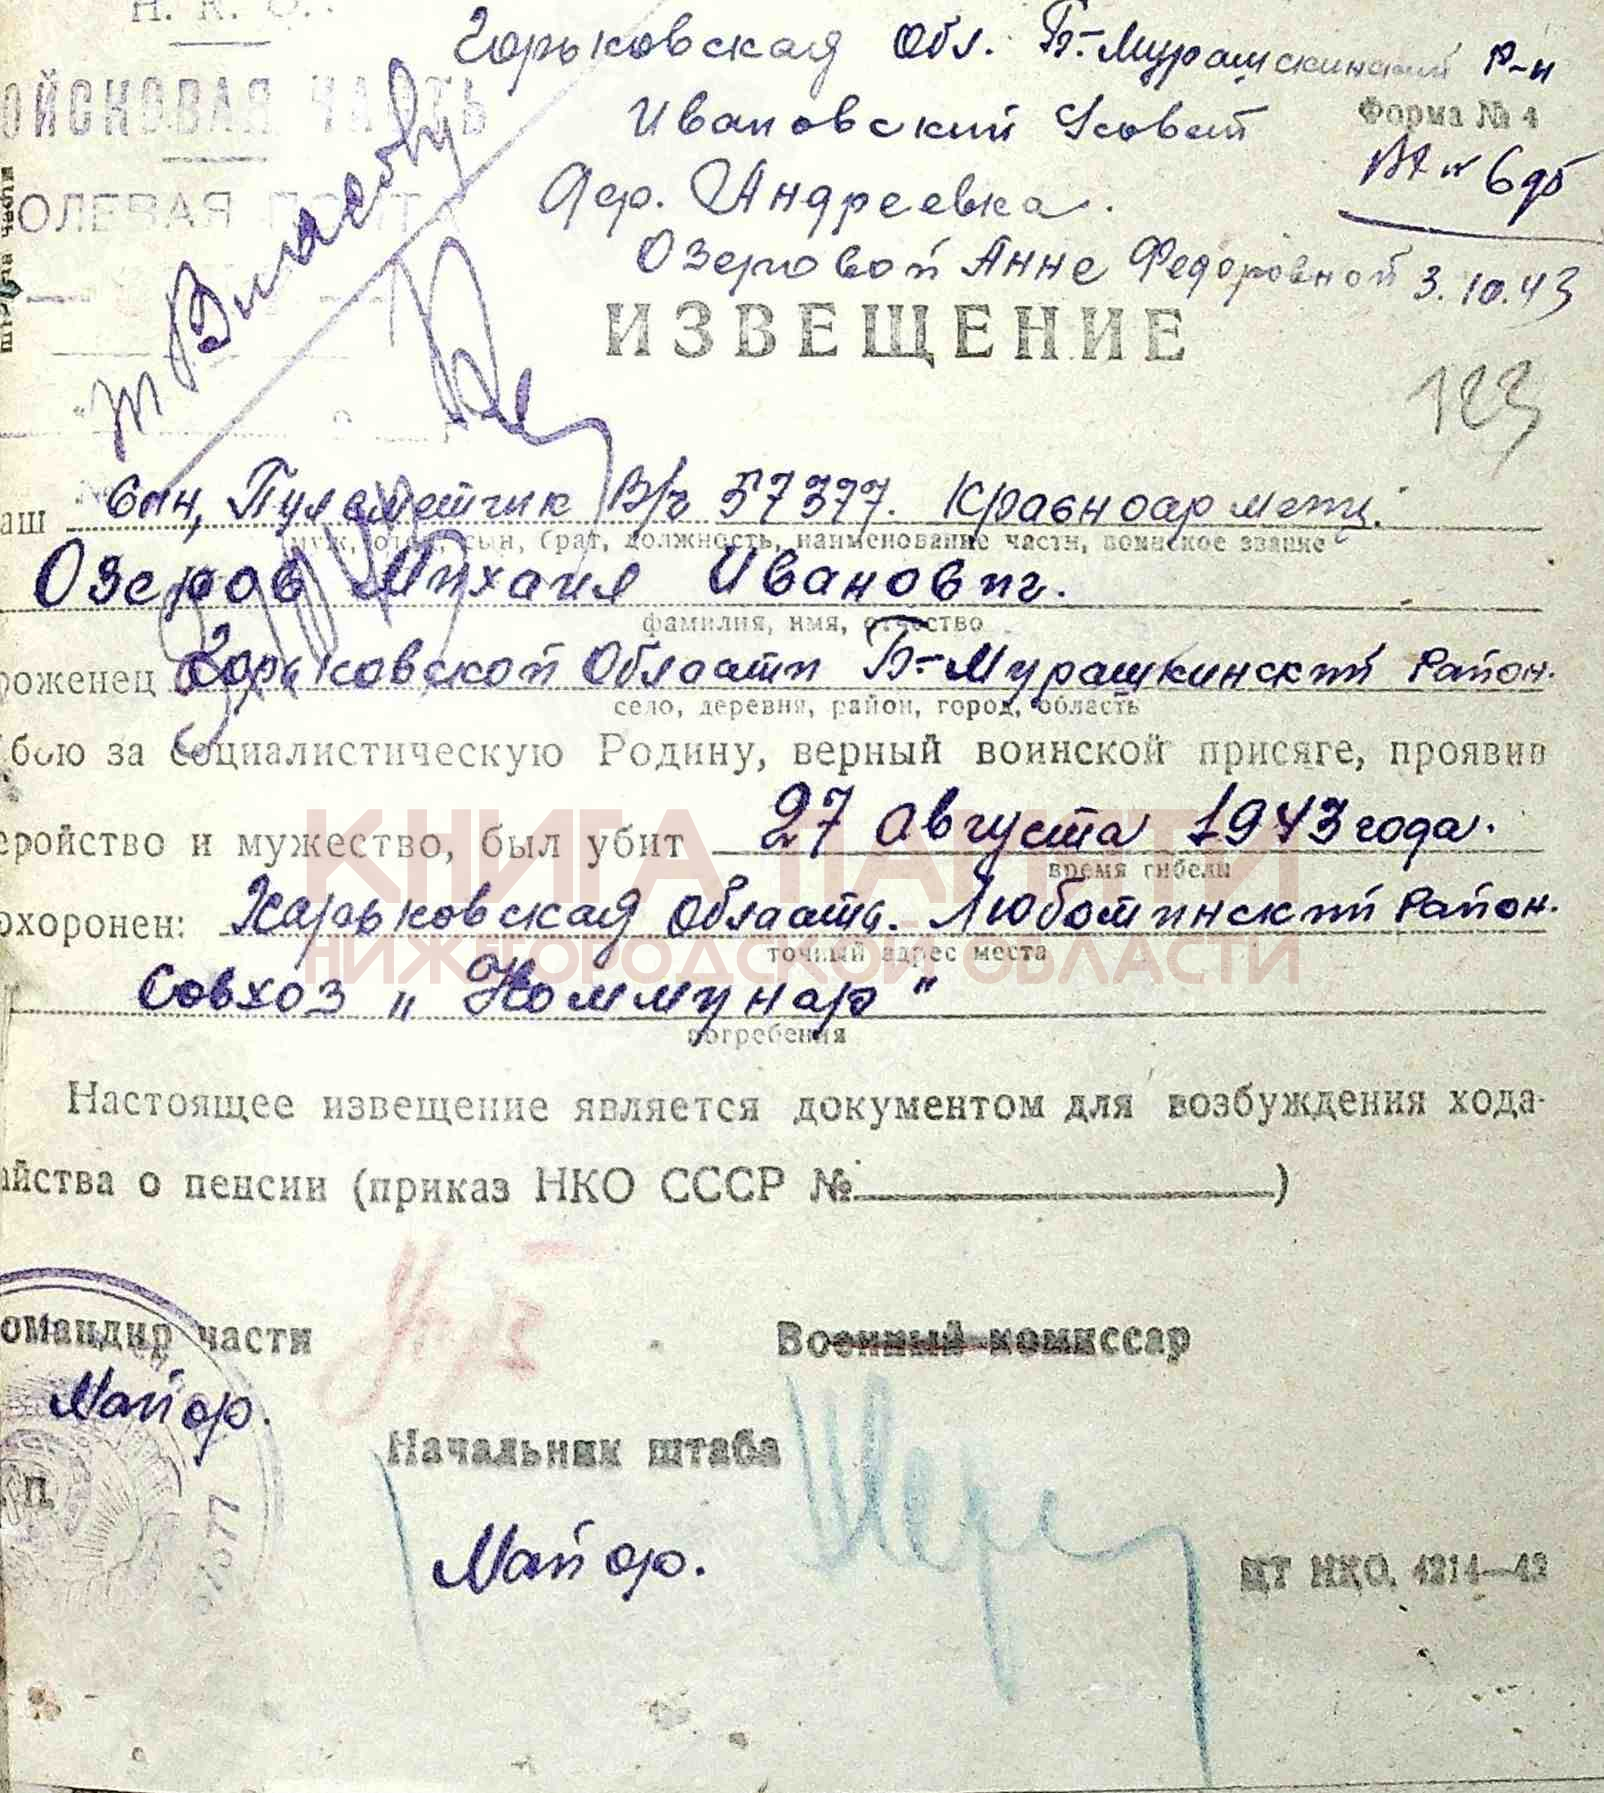 Н. К. О.
Горьковская Обл. Б.-Мурашкинский р-н
ОЙСКОВАЯ ЧАСТЬ
Ивановский с/совет
Форма № 4
ОЛЕВАЯ ПОЧТ
Дер. Андреевка.
Озеровой Анне Федоровной 3.10.43
т Власову
ИЗВЕЩЕНИЕ
123
аш сын, Пулеметчик В/ч 57377. Красноармеец.
муж, отец, сын, брат, должность, наименование части, воинское звание
Озеров Михаил Иванович.
фамилия, имя, отчество
роженец Горьковской Области Б.-Мурашкинский Район.
село, деревня, район, город, область
бою за социалистическую Родину, верный воинской присяге, проявив
еройство и мужество, был убит 27 Августа 1943 года.
время гибели
охоронен: Харьковская Область. Люботинский Район.
точный адрес места
Совхоз „Коммунар"
погребения
КНИГА ПАМЯТИ
НИЖЕГОРОДСКОЙ ОБЛАСТИ
Настоящее извещение является документом для возбуждения хода-
айства о пенсии (приказ НКО СССР № )
омандир части
Военный комиссар
Майор.
Начальник штаба
п.
Майор.
ЦТ НКО. 4214—42